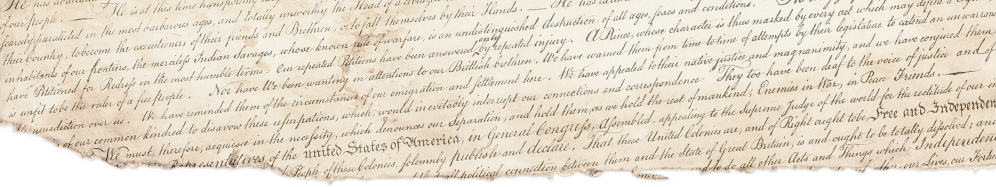 He is at this time transporting
of our people. — He is at this time
scarcely paralleled in the most barbarous ages, and totally unworthy the Head of a civilized
their Country, to become the executioners of their friends and Brethren, or to fall themselves by their Hands. — He has
inhabitants of our frontiers, the merciless Indian Savages, whose known rule of warfare, is an undistinguished destruction of all ages, sexes and conditions.
have Petitioned for Redress in the most humble terms: Our repeated Petitions have been answered only by repeated injury. A Prince, whose character is thus marked by every act which may define a
is unfit to be the ruler of a free people. Nor have We been wanting in attentions to our Brittish brethren. We have warned them from time to time of attempts by their legislature to extend an unwarrantable
jurisdiction over us. We have reminded them of the circumstances of our emigration and settlement here. We have appealed to their native justice and magnanimity, and we have conjured them
of our common kindred to disavow these usurpations, which, would inevitably interrupt our connections and correspondence. They too have been deaf to the voice of justice and of
We must, therefore, acquiesce in the necessity, which denounces our Separation, and hold them, as we hold the rest of mankind, Enemies in War, in Peace Friends. —
Representatives of the united States of America, in General Congress, Assembled, appealing to the Supreme Judge of the world for the rectitude of our
People of these Colonies, solemnly publish and declare, That these United Colonies are, and of Right ought to be Free and Independent
political connection between them and the State of Great Britain, is and ought to be totally dissolved; and
to do all other Acts and Things which Independent
our Lives, our Fortunes